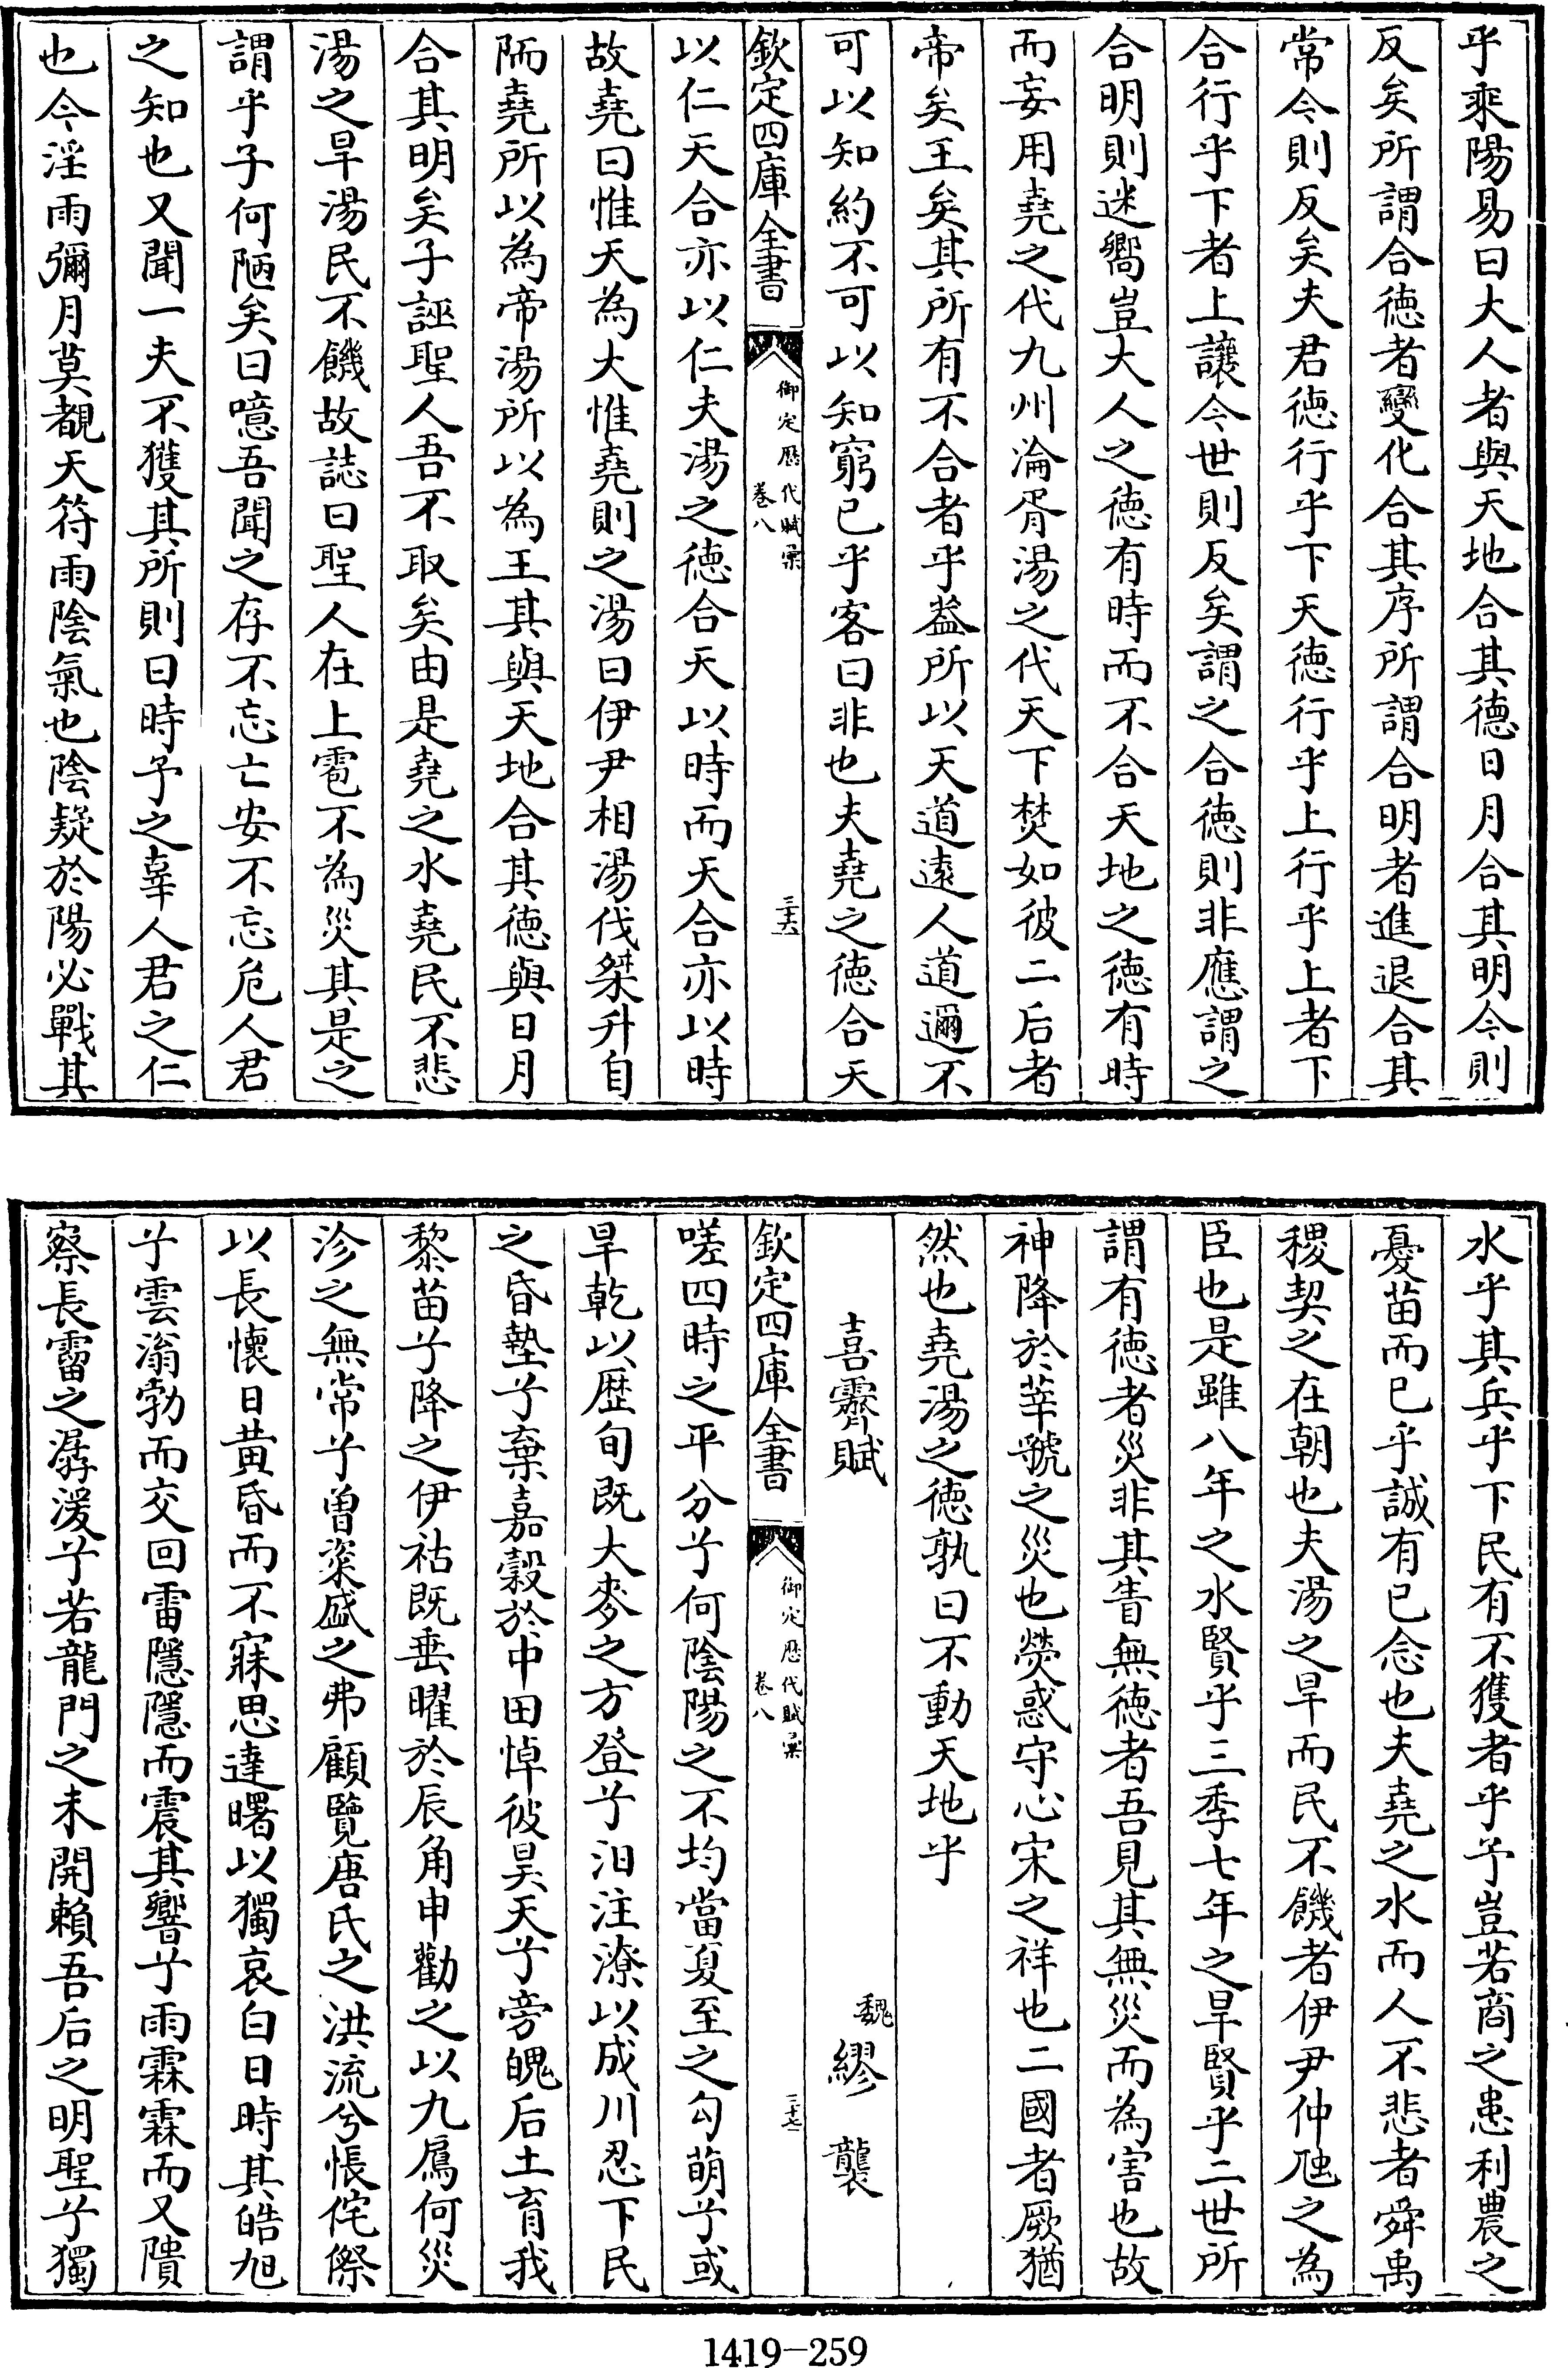 乎乘陽易曰大人者與天地合其德日月合其明今則
反矣所謂合徳者變化合其序所謂合明者進退合其
常今則反矣夫君徳行乎下天徳行乎上行乎上者下
合行乎下者上讓今世則反矣謂之合徳則非應謂之
合明則迷嚮豈大人之徳有時而不合天地之徳有時
而妄用堯之代九州淪胥湯之代天下焚如彼二后者
帝矣王矣其所有不合者乎益所以天道遠人道邇不
可以知約不可以知窮已乎客曰非也夫堯之徳合天
欽定四庫全書
御定歷代賦彙
卷八
三十六
以仁天合亦以仁夫湯之徳合天以時而天合亦以時
故堯曰惟天為大惟堯則之湯曰伊尹相湯伐桀升自
陑堯所以為帝湯所以為王其與天地合其徳與日月
合其明矣子誣聖人吾不取矣由是堯之水堯民不悲
湯之旱湯民不饑故誌曰聖人在上雹不為災其是之
謂乎子何陋矣曰噫吾聞之存不忘亡安不忘危人君
之知也又聞一夫不獲其所則曰時予之辜人君之仁
也今淫雨彌月莫覩天符雨陰氣也陰疑於陽必戰其
水乎其兵乎下民有不獲者乎予豈若商之患利農之
憂苗而已乎誠有已念也夫堯之水而人不悲者舜禹
稷契之在朝也夫湯之旱而民不饑者伊尹仲虺之為
臣也是雖八年之水賢乎三季七年之旱賢乎二世所
謂有徳者災非其眚無徳者吾見其無災而為害也故
神降於莘虢之災也熒惑守心宋之祥也二國者厥猶
然也堯湯之徳孰曰不動天地乎
喜霽賦
魏 繆襲
欽定四庫全書
御定歷代賦彙
卷八
三十七
嗟四時之平分兮何陰陽之不均當夏至之勾萌兮或
旱乾以歷旬既大麥之方登兮汨注潦以成川忍下民
之昏墊兮棄嘉穀於中田悼彼昊天兮旁魄后土育我
黎苗兮降之伊祜既垂曜於辰角申勸之以九鳸何災
沴之無常兮曾粢盛之弗顧覽唐氏之洪流兮悵侘傺
以長懷日黄昏而不寐思達曙以獨哀白日時其皓旭
兮雲滃勃而交回雷隱隱而震其響兮雨霖霖而又隤
察長霤之潺湲兮若龍門之未開賴吾后之明聖兮獨
1419-259